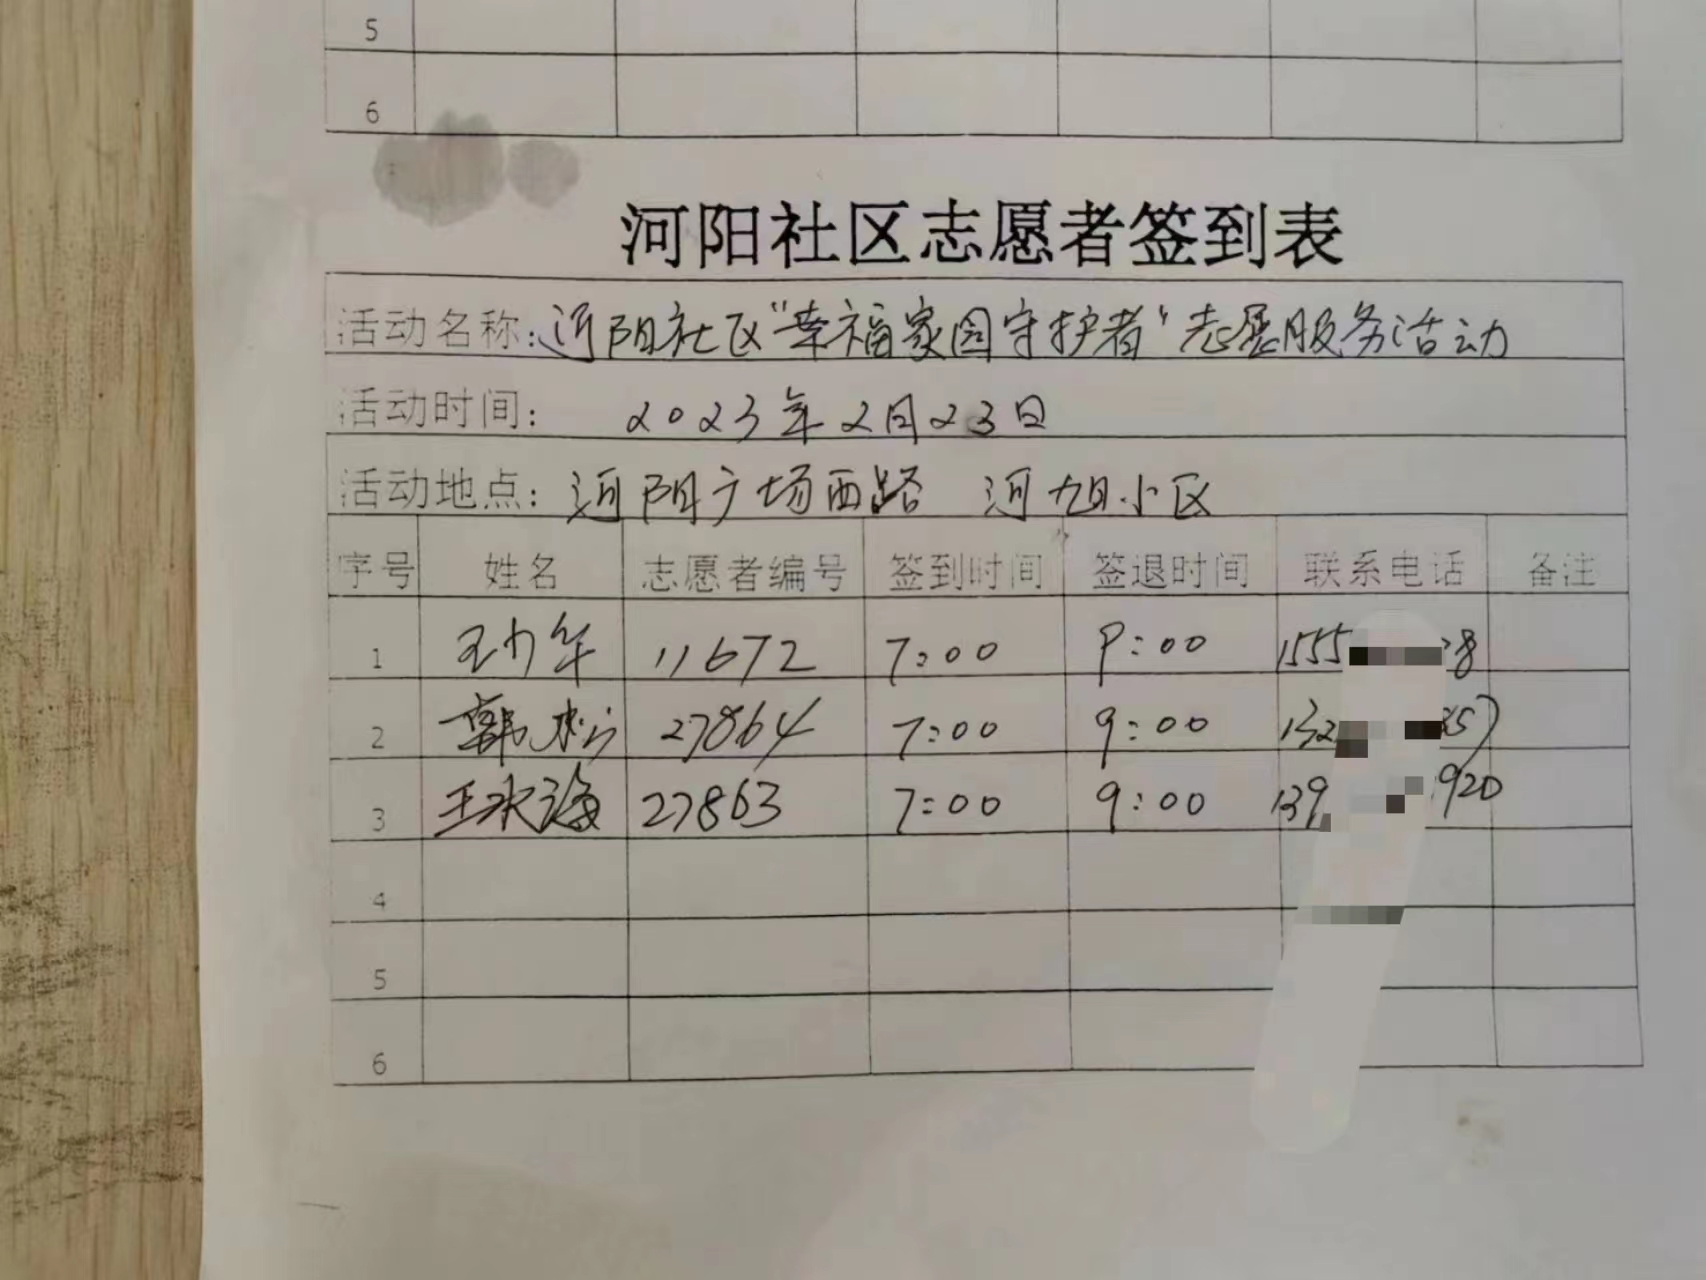 5
6
河阳社区志愿者签到表
活动名称:河阳社区“幸福家园守护者”志愿服务活动
活动时间: 2023年2月23日
活动地点: 河阳广场西路 河旭小区
序号 姓名 志愿者编号 签到时间 签退时间 联系电话 备注
1 11672 7:00 9:00 1555 8
2 韩松 27864 7:00 9:00 132 57
3 王永海 27863 7:00 9:00 139 920
4
5
6